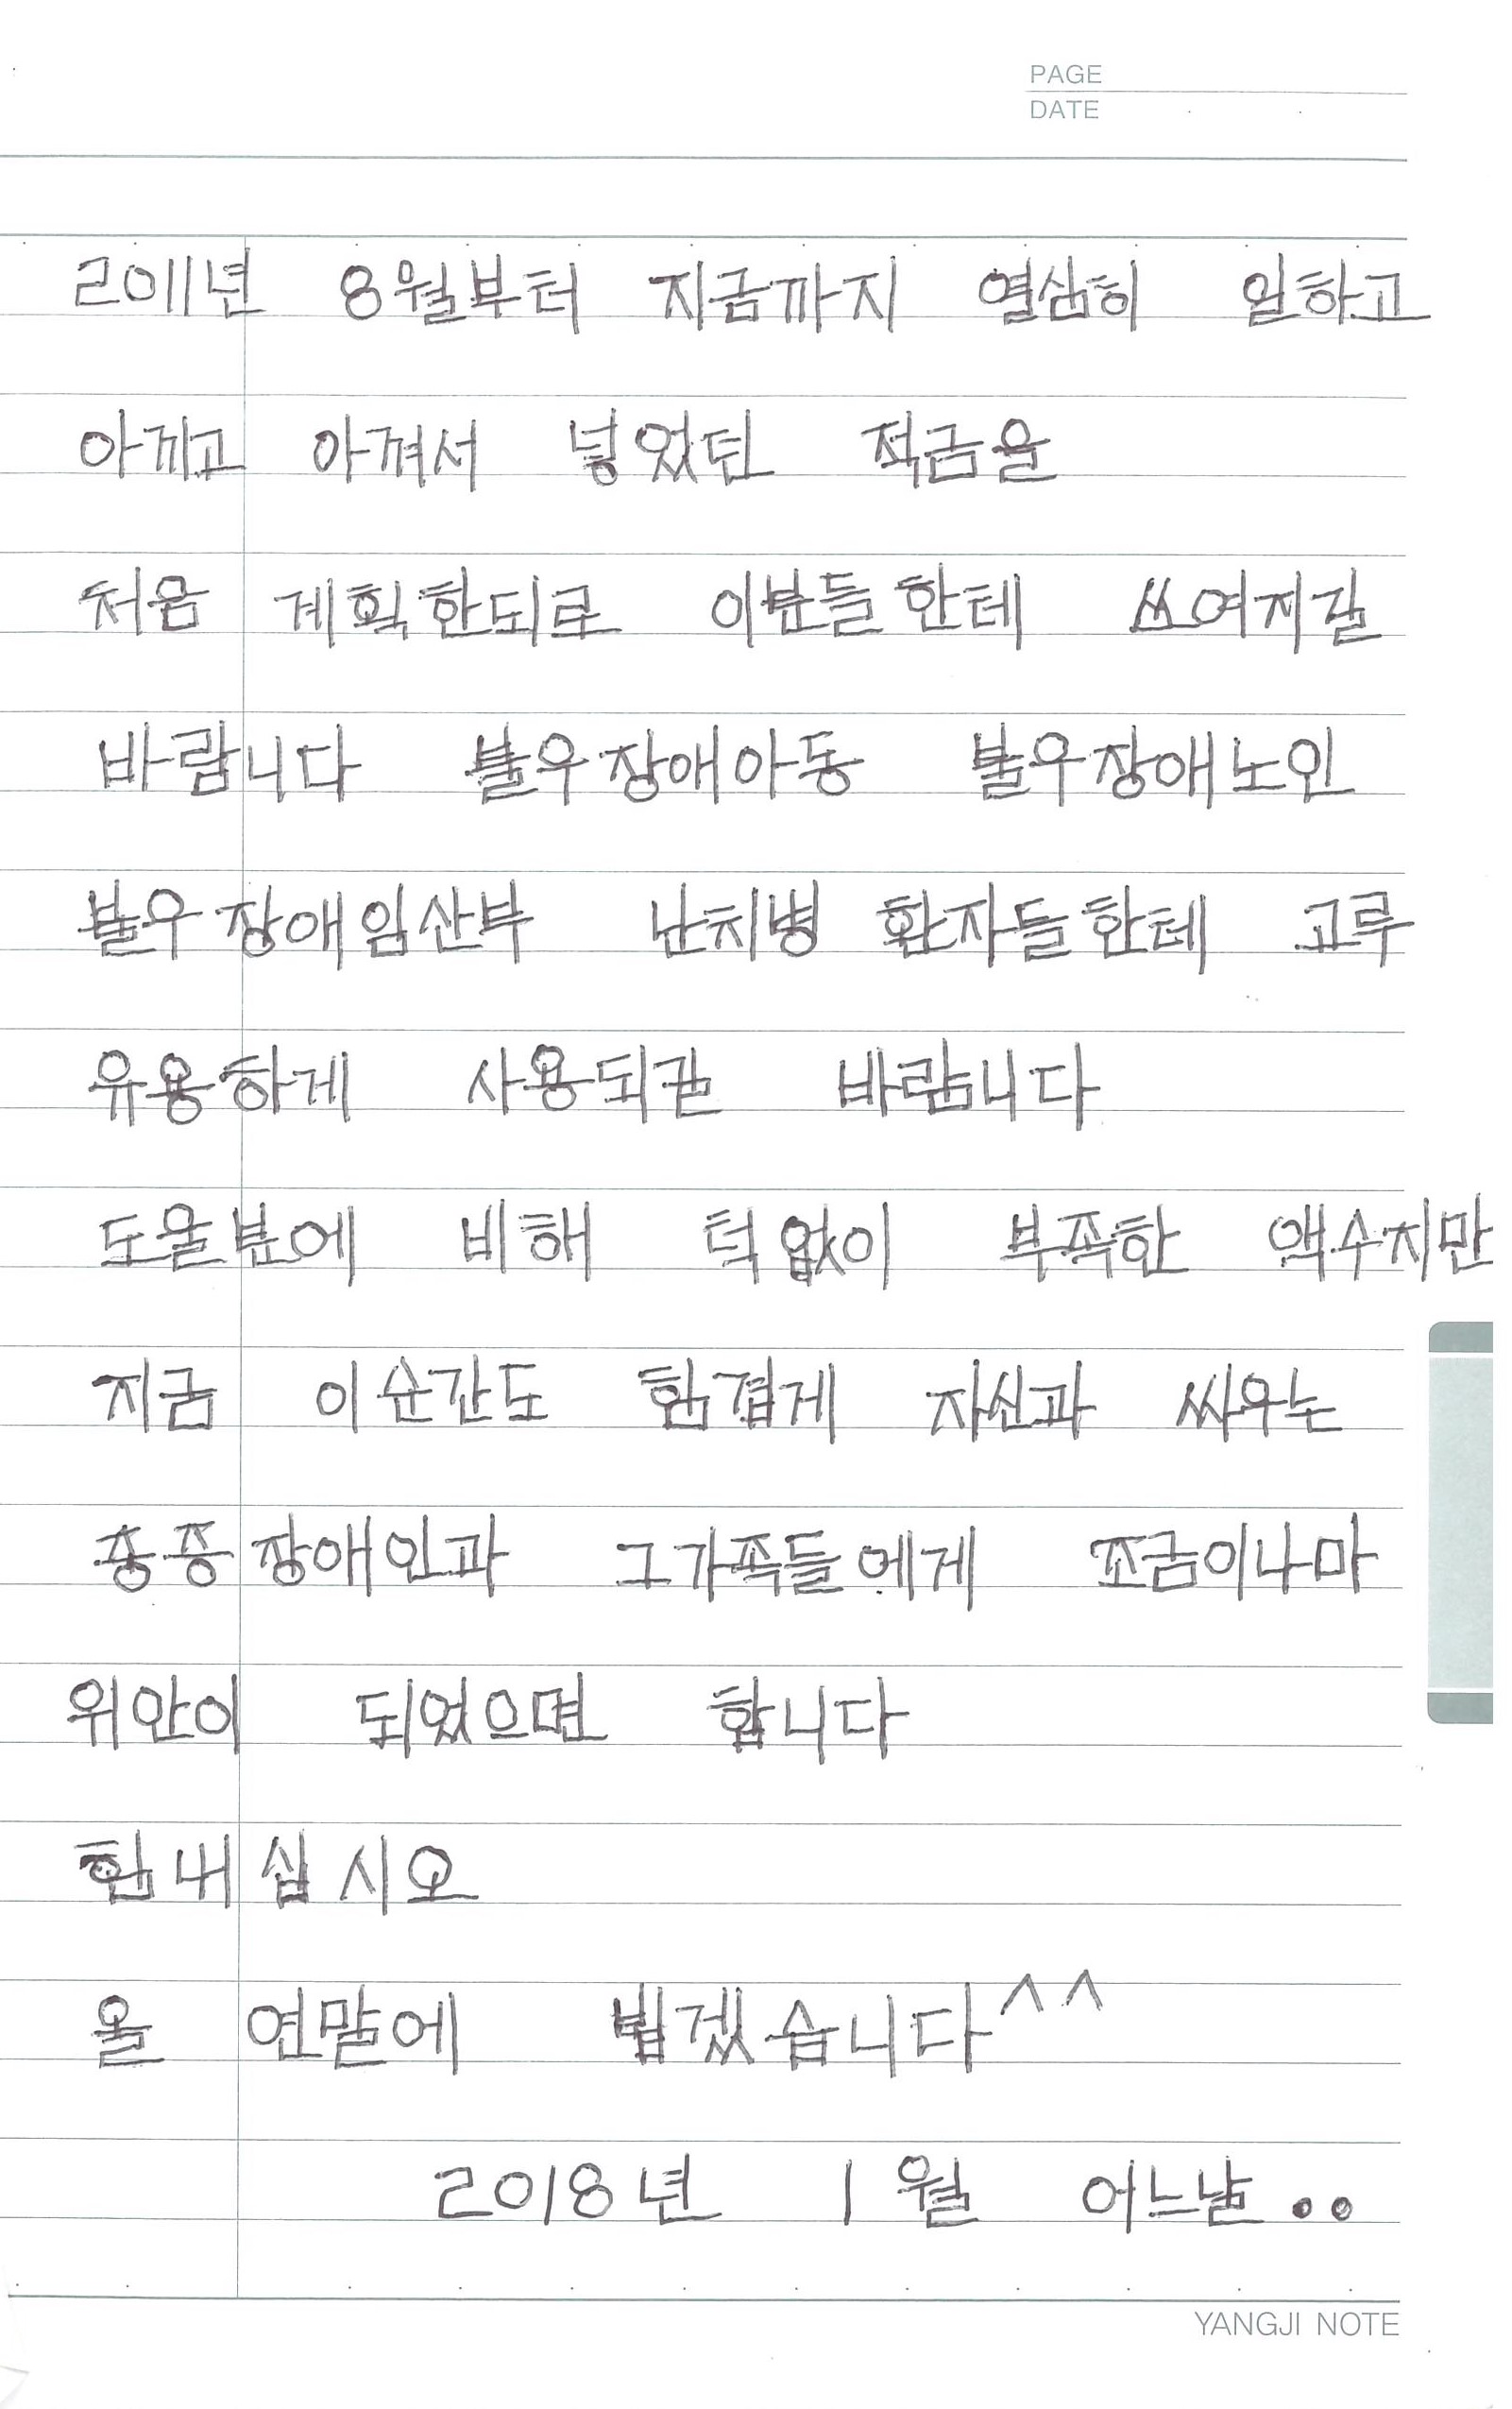 PAGE
DATE
2011년 8월부터 지금까지 열심히 일하고
아끼고 아껴서 넣었던 적금을
처음 계획한되로 이분들한테 쓰여지길
바람니다 불우장애아동 불우장애노인
불우장애임산부 난치병 환자들한테 고루
유용하게 사용되길 바람니다
도울분에 비해 턱없이 부족한 액수지만
지금 이순간도 힘겹게 자신과 싸우는
중증장애인과 그가족들에게 조금이나마
위안이 되었으면 합니다
힘내십시오
올 연말에 뵙겠습니다^^
2018년 1월 어느날..
YANGJI NOTE